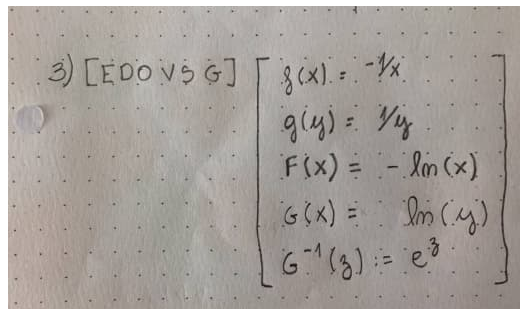 3) [EDO VS G] f(x) = -1/x
g(y) = 1/y
F(x) = - ln(x)
G(x) = ln(y)
G⁻¹(z) := e^z